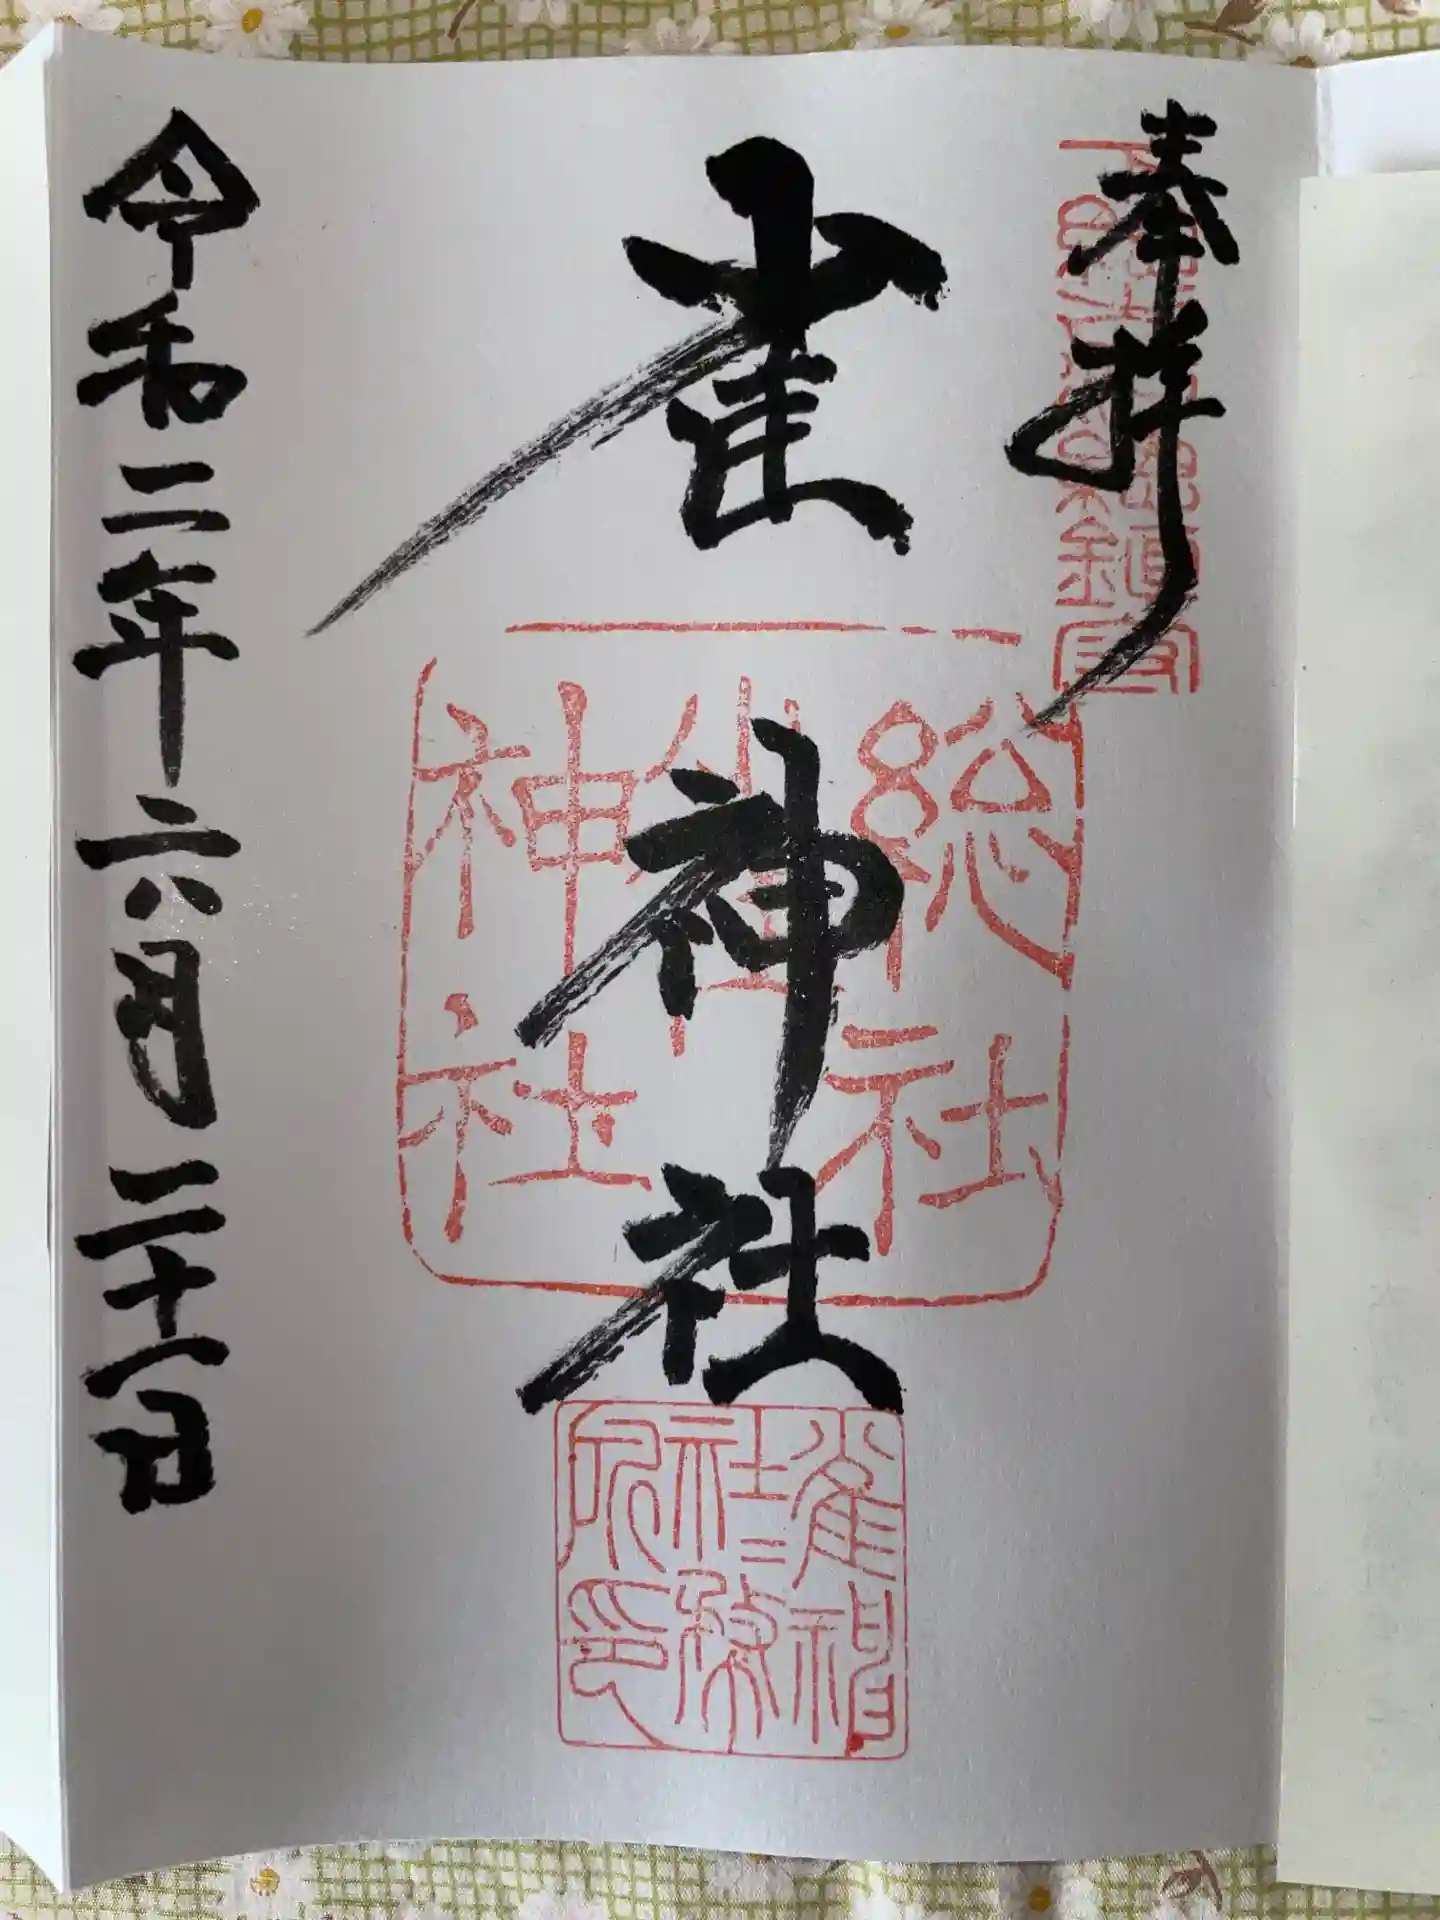 奉拝
雀神社
総社
雀
神社
雀神
社務
所印
令和二年六月二十一日